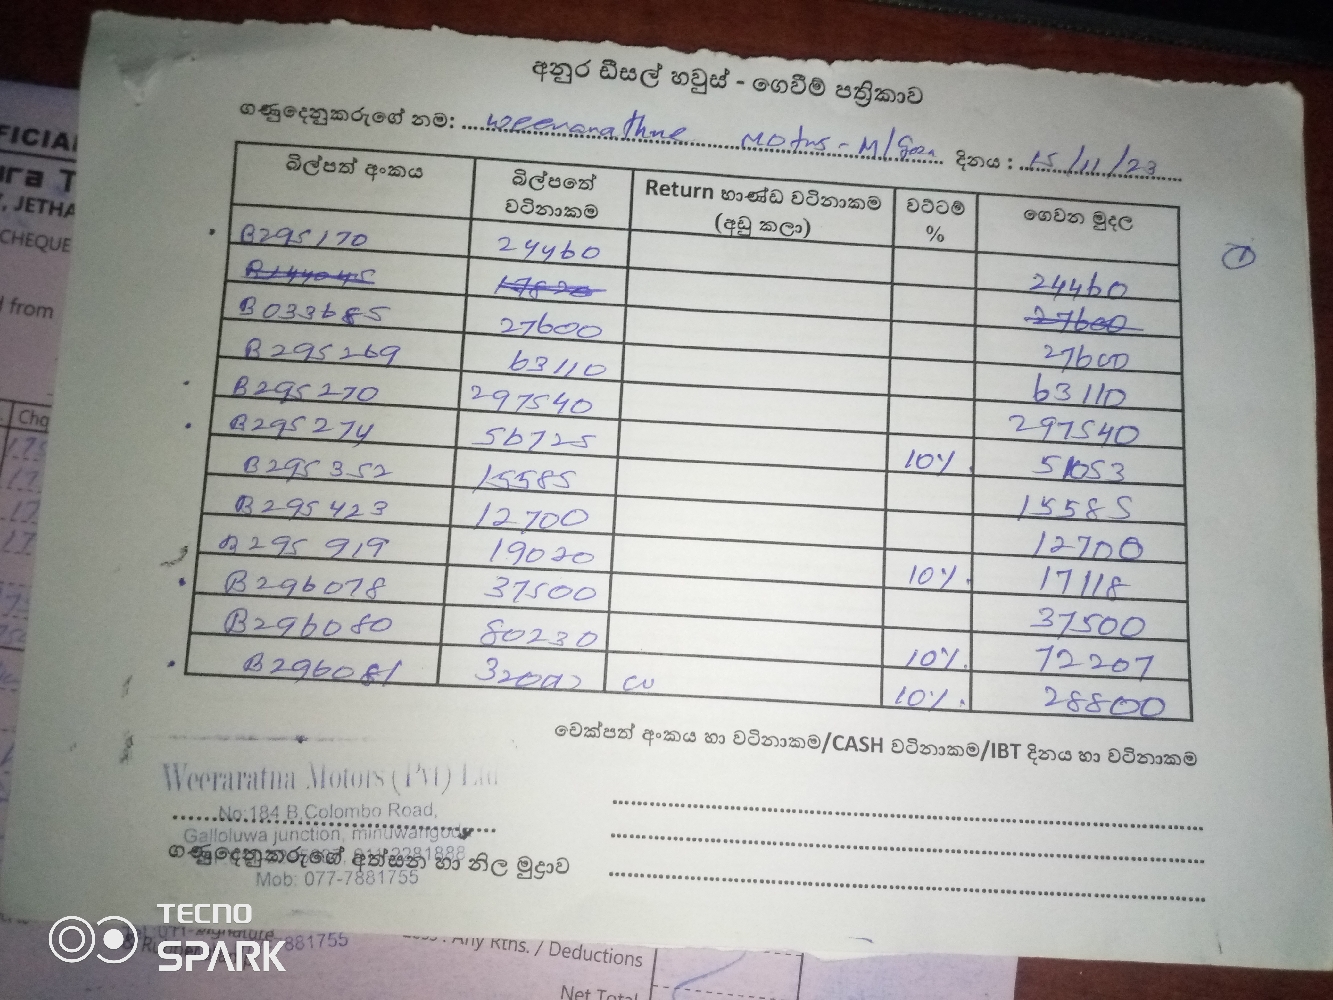 අනුර ඩීසල් හවුස් - ගෙවීම් පත්‍රිකාව
ගණුදෙනුකරුගේ නම: weerarathne Motors - M/ දිනය : 15/11/23
බිල්පත් අංකය බිල්පතේ වටිනාකම Return භාණ්ඩ වටිනාකම (අඩු කලා) වට්ටම් % ගෙවන මුදල
B295170 24460 24460
B144045 17820 27600
B033685 27600 27600
B295269 63110 63110
B295270 297540 297540
B295274 56725 10% 51053
B295352 15585 15585
B295423 12700 12700
B295919 19020 10% 17118
B296078 37500 37500
B296080 80230 10% 72207
B296081 10% 28800
1
චෙක්පත් අංකය හා වටිනාකම/CASH වටිනාකම/IBT දිනය හා වටිනාකම
Weeraratna Motors (Pvt) Ltd
No:184 B,Colombo Road,
Galloluwa junction, minuwangoda
ගණුදෙනුකරුගේ අත්සන හා නිල මුද්‍රාව
Mob: 077-7881755
FICIAL
ura T
, JETHA
CHEQUE
from
Chq
TECNO
SPARK
881755
: Any Rtns. / Deductions
Net Total